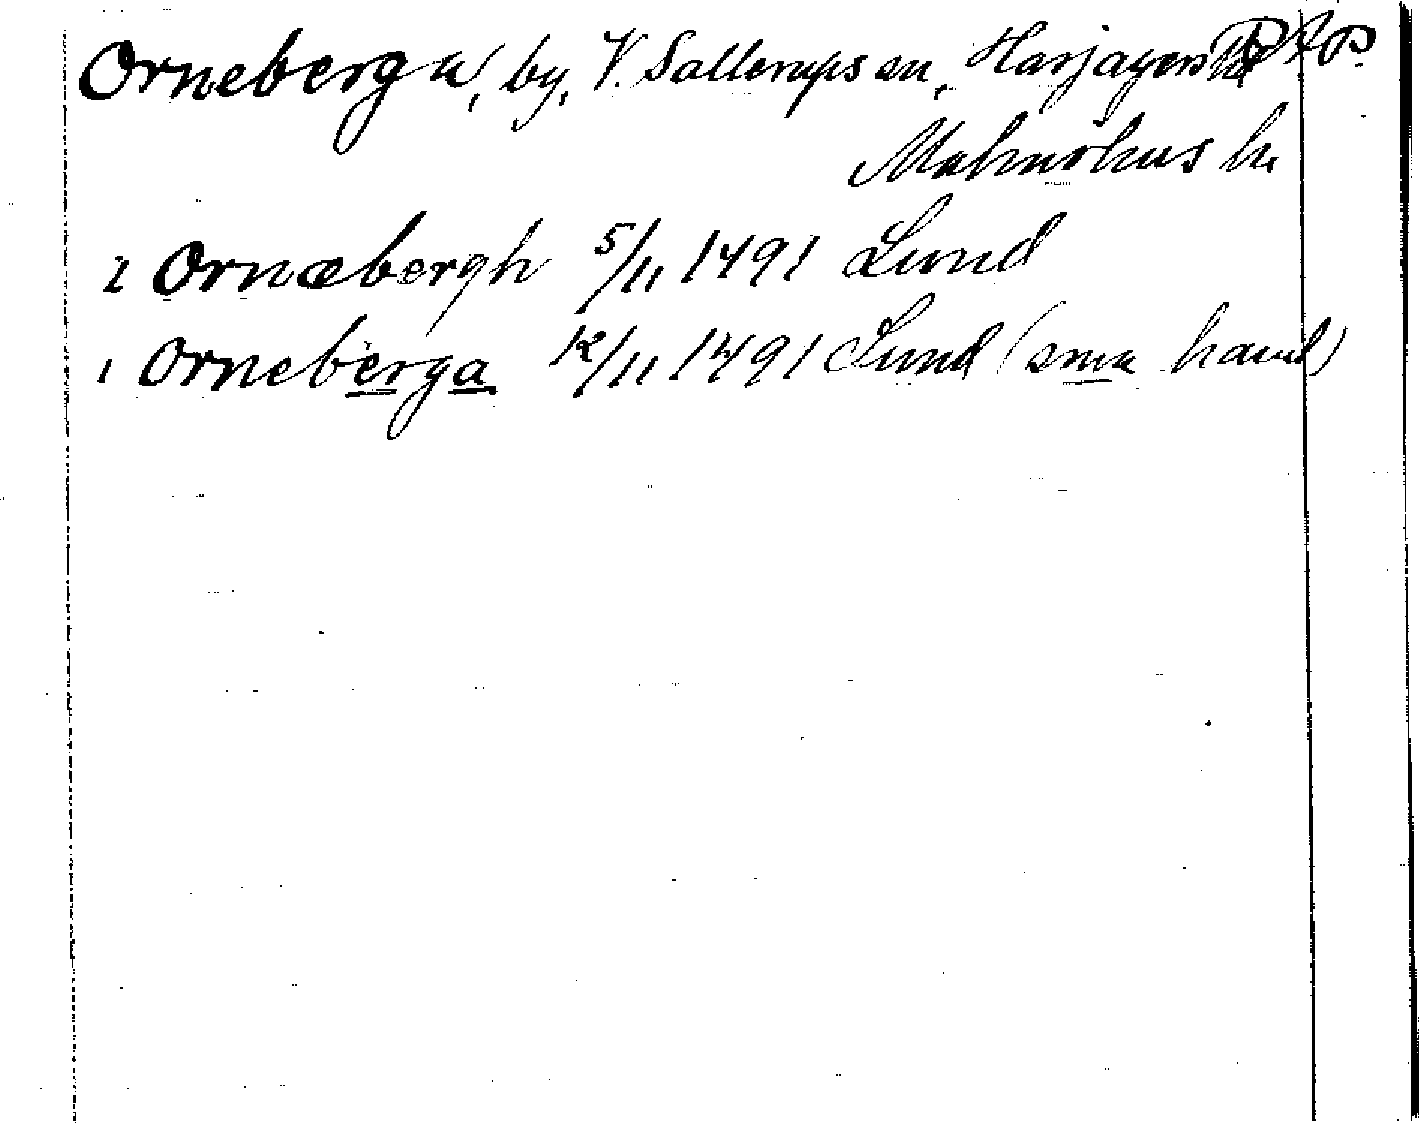 Orneberga, by, V. Sallerups sn, Harjagers hd
Malmöhus ln
2 Ornæbergh 5/11 1491 Lund
1 Orneberga 12/11 1491 Lund (sma hand)